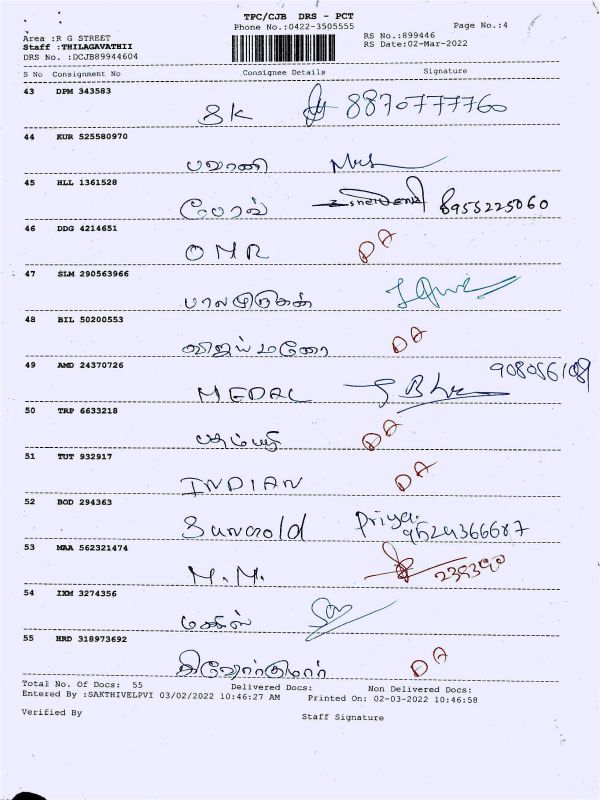 TPC/CJB DRS - PCT
Phone No.:0422-3505555 Page No.:4
Area :R G STREET RS No.:899446
Staff :THILAGAVATHII RS Date:02-Mar-2022
DRS No. :DCJB89944604
S No Consignment No Consignee Details Signature
43 DPM 343583
SK 8870777760
44 KUR 525580970
பவானி
45 HLL 1361528
8955225060
46 DDG 4214651
OMR DA
47 SLM 290563966
பாலமுருகன்
48 BIL 50200553
DA
49 AMD 24370726
MEDAL
50 TRP 6633218
DA
51 TUT 932917
INDIAN DA
52 BOD 294363
Priya.
9524366687
53 MAA 562321474
M.M.
54 IXM 3274356
மகிஸ்
55 HRD 318973692
DA
Total No. Of Docs: 55 Delivered Docs: Non Delivered Docs:
Entered By :SAKTHIVELPVI 03/02/2022 10:46:27 AM Printed On: 02-03-2022 10:46:58
Verified By Staff Signature